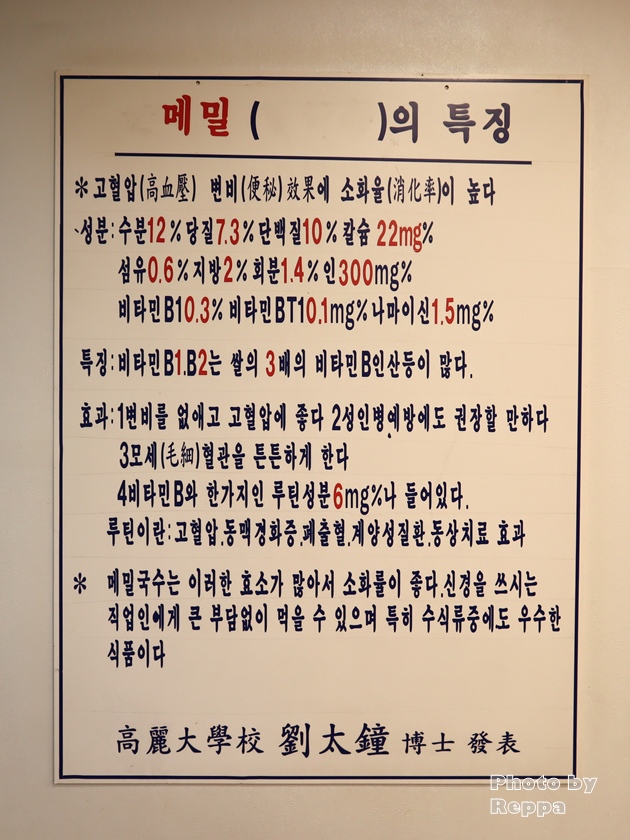 메밀 ( )의 특징
*고혈압(高血壓) 변비(便秘)效果에 소화율(消化率)이 높다
성분:수분12%당질7.3%단백질10%칼슘 22mg%
섬유0.6%지방2%회분1.4%인300mg%
비타민B10.3%비타민BT10.1mg%나마이신1.5mg%
특징:비타민B1.B2는 쌀의 3배의 비타민B인산등이 많다.
효과:1변비를 없애고 고혈압에 좋다 2성인병예방에도 권장할 만하다
3모세(毛細)혈관을 튼튼하게 한다
4비타민B와 한가지인 루틴성분6mg%나 들어있다.
루틴이란:고혈압.동맥경화증.폐출혈.계양성질환.동상치료 효과
* 메밀국수는 이러한 효소가 많아서 소화률이 좋다.신경을 쓰시는
직업인에게 큰 부담없이 먹을 수 있으며 특히 수식류중에도 우수한
식품이다
高麗大學校 劉太鐘 博士 發表
Photo by
Reppa